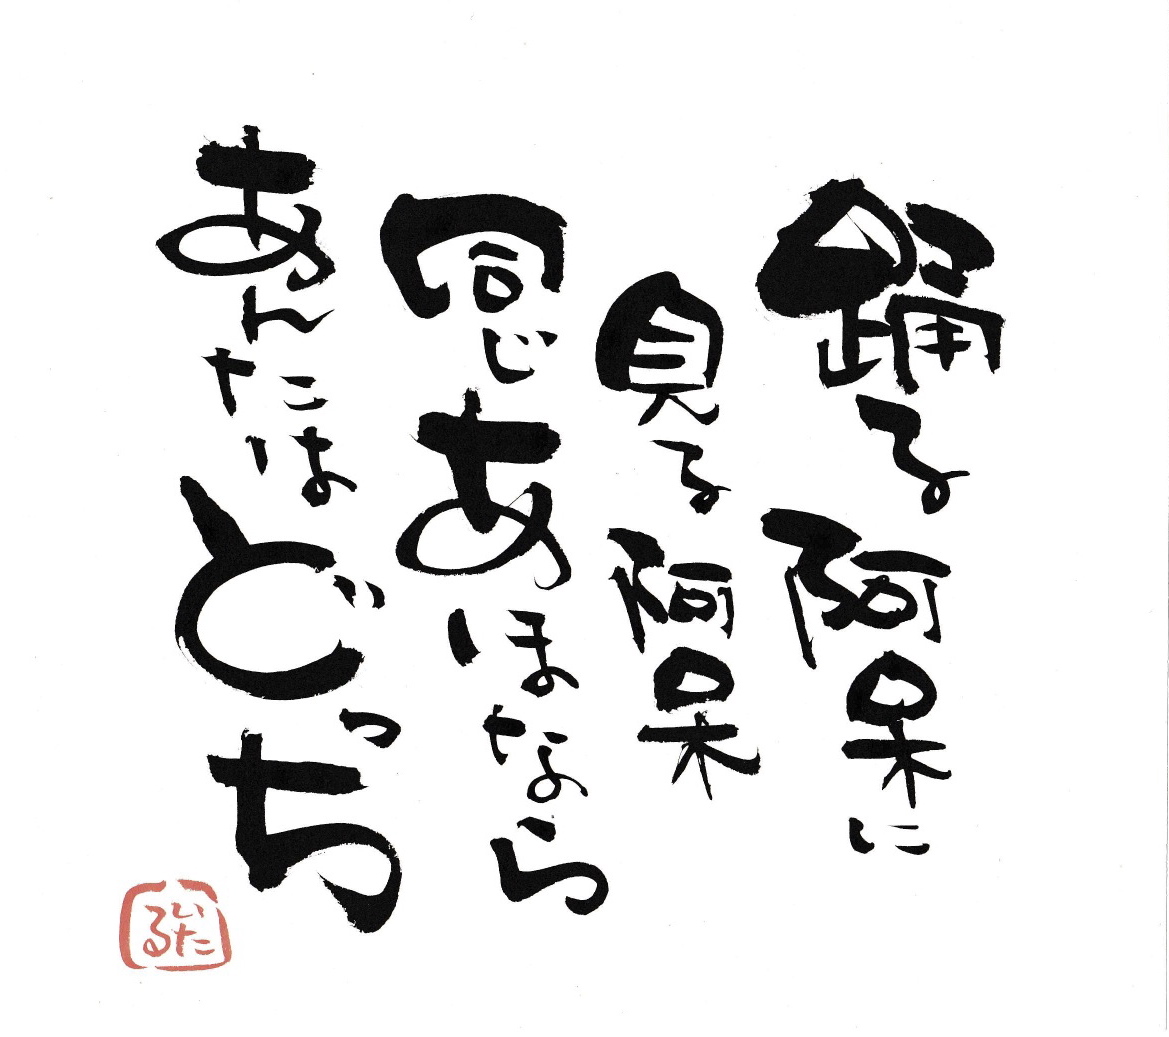 踊る阿呆に
見る阿呆
同じあほなら
あんたはどっち
いたる